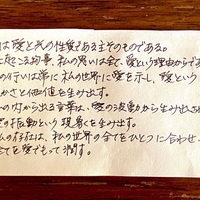 は愛と光の性質である主そのものである。
に起こる物事、私の思いは全て、愛という理由からであ
の行いは常に私の世界に愛を示し、愛という
かさと価値を生み出す。
の内から出る言葉は、愛の波動から生み出され
その振動という現象を生み出す。
ムの存在は、私の世界の全てをひとつに合わせ、
全てを愛でもって潤す。